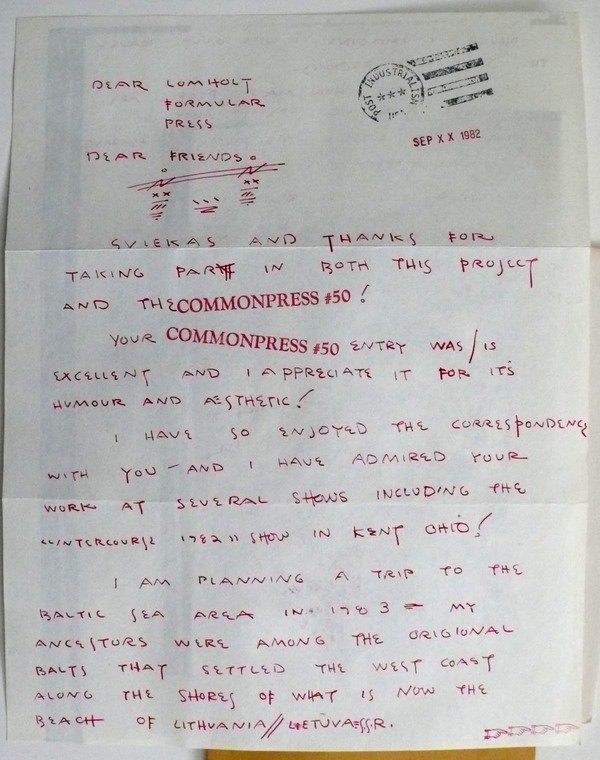 DEAR LOMHOLT
FORMULAR
PRESS
POST INDUSTRIALISM
SEP X X 1982
DEAR FRIENDS.
SVIEKAS AND THANKS FOR
TAKING PART IN BOTH THIS PROJECT
AND THE COMMONPRESS #50!
YOUR COMMONPRESS #50 ENTRY WAS/IS
EXCELLENT AND I APPRECIATE IT FOR ITS
HUMOUR AND AESTHETIC!
I HAVE SO ENJOYED THE CORRESPONDENCE
WITH YOU - AND I HAVE ADMIRED YOUR
WORK AT SEVERAL SHOWS INCLUDING THE
"INTERCOURSE 1982" SHOW IN KENT OHIO!
I AM PLANNING A TRIP TO THE
BALTIC SEA AREA IN 1983 - MY
ANCESTORS WERE AMONG THE ORIGIONAL
BALTS THAT SETTLED THE WEST COAST
ALONG THE SHORES OF WHAT IS NOW THE
BEACH OF LITHUANIA//LIETUVA-SSR.